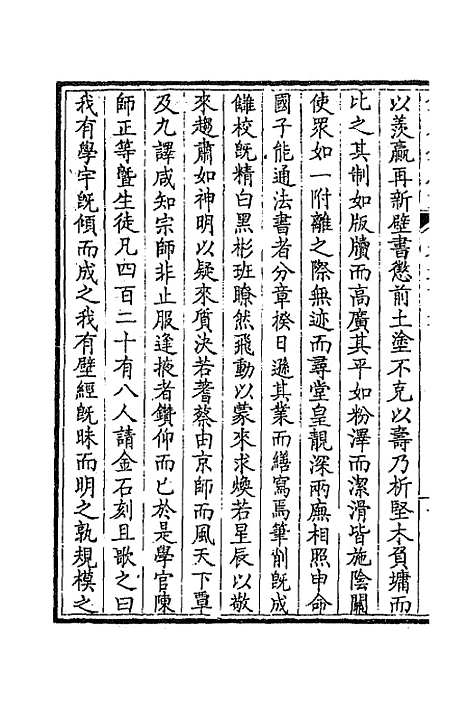 以羡贏再新壁書懲前土塗不克以壽乃析堅木負墉而
比之其制如版牘而高廣其平如粉澤而潔滑皆施陰關
使眾如一附離之際無迹而尋堂皇靚深兩廡相照申命
國子能通法書者分章揆日遜其業而繕寫焉筆削既成
讎校既精白黑彬班瞭然飛動以蒙來求煥若星辰以敬
來趨肅如神明以疑來質決若蓍蔡由京師而風天下覃
及九譯咸知宗師非止服逢掖者鑽仰而已於是學官陳
師正等曁生徒凡四百二十有八人請金石刻且歌之曰
我有學宇既傾而成之我有壁經既昧而明之孰規模之